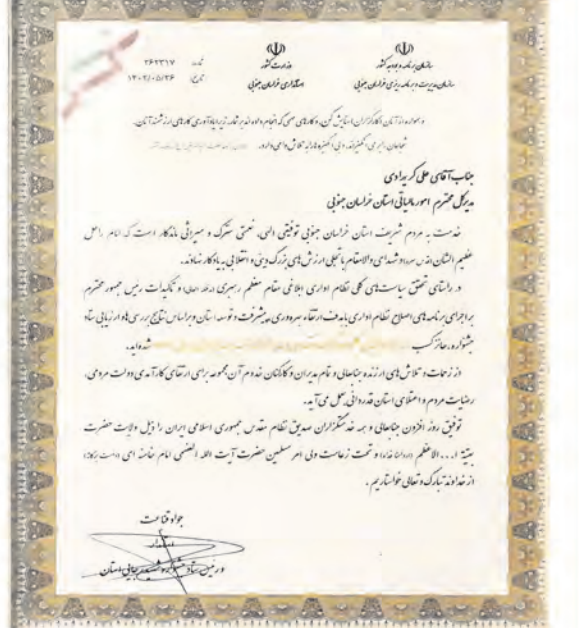 سازمان برنامه و بودجه کشور
سازمان مدیریت و برنامه‌ریزی خراسان جنوبی
وزارت کشور
استانداری خراسان جنوبی
شماره: ۲۶۲۳۱۷
تاریخ: ۱۴۰۲/۰۵/۲۶
و همواره از آنان و کارگزاران ستایش کن، و کارهای مهمی که انجام داده‌اند بر شمار، زیرا یادآوری کارهای ارزشمند آنان،
شجاعان را بر می‌انگیزاند، و بی‌انگیزه‌ها را به تلاش وا می‌دارد.
جناب آقای علی کریم
مدیرکل محترم امور مالیاتی استان خراسان جنوبی
خدمت به مردم شریف استان خراسان جنوبی توفیقی الهی، نعمتی سترگ و میراثی ماندگار است که امام راحل
عظیم الشان (قدس سره) و شهدای والامقام با تجلی ارزش‌های بزرگ دینی و انقلابی به یادگار نهادند.
در راستای تحقق سیاست‌های کلی نظام اداری ابلاغی مقام معظم رهبری و تأکیدات رئیس جمهور محترم
بر اجرای برنامه‌های اصلاح نظام اداری با هدف ارتقاء بهره‌وری، پیشرفت و توسعه استان و براساس نتایج بررسی‌ها و ارزیابی ستاد
جشنواره، حائز کسب شده‌اید.
از زحمات و تلاش‌های ارزنده جنابعالی و تمام مدیران و کارکنان خدوم آن مجموعه برای ارتقای کارآمدی دولت مردمی،
رضایت مردم و اعتلای استان قدردانی بعمل می‌آید.
توفیق روز افزون جنابعالی و همه خدمتگزاران صدیق نظام مقدس جمهوری اسلامی ایران را ذیل ولایت حضرت
بقیة ا... الاعظم (ارواحنا فداه) و تحت زعامت ولی امر مسلمین حضرت آیت الله العظمی امام خامنه ای (دامت برکاته)
از خداوند تبارک و تعالی خواستاریم.
جواد قناعت
استاندار
و رئیس ستاد جشنواره شهید رجایی استان